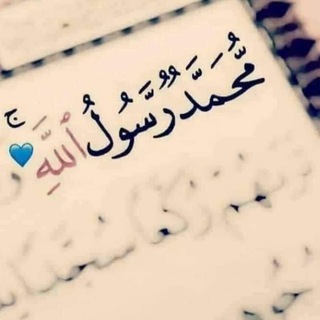 مُّحَمَّدٌ رَّسُولُ ٱللَّهِ ۚ
تَرَىٰهُمْ رُكَّعًا سُجَّدًا